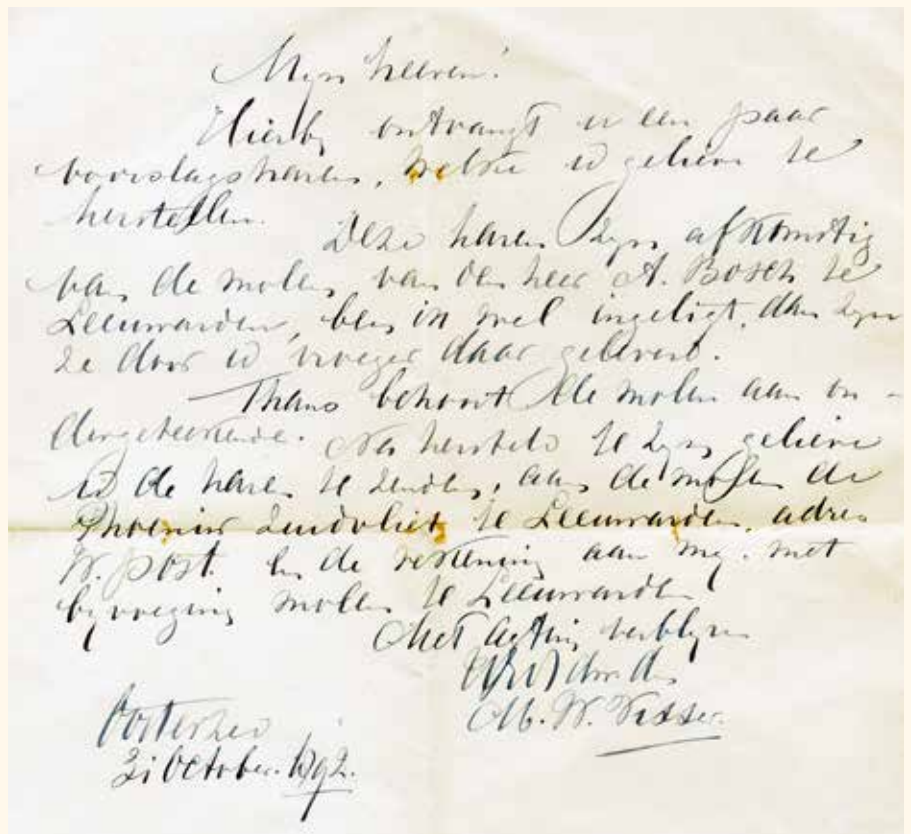 Mijn heeren!
Hierbij ontvangt u een paar
voorslagsharen, welke u gelieve te
herstellen.
Deze haren zijn afkomstig
van de molen van den heer A. Bosch te
Leeuwarden, ben ik wel ingeligt, dan zijn
ze door u vroeger daar gelevert.
Thans behoort de molen aan on-
dergeteekende. Na hersteld te zijn gelieve
u de haren te zenden, aan de molen de
Phoenix Zuidvliet te Leeuwarden, adres
W. Post. en de rekening aan mij. met
bijvoeging molen te Leeuwarden
Met achting verblijve
M. W. Visser.
31 October. 1892.